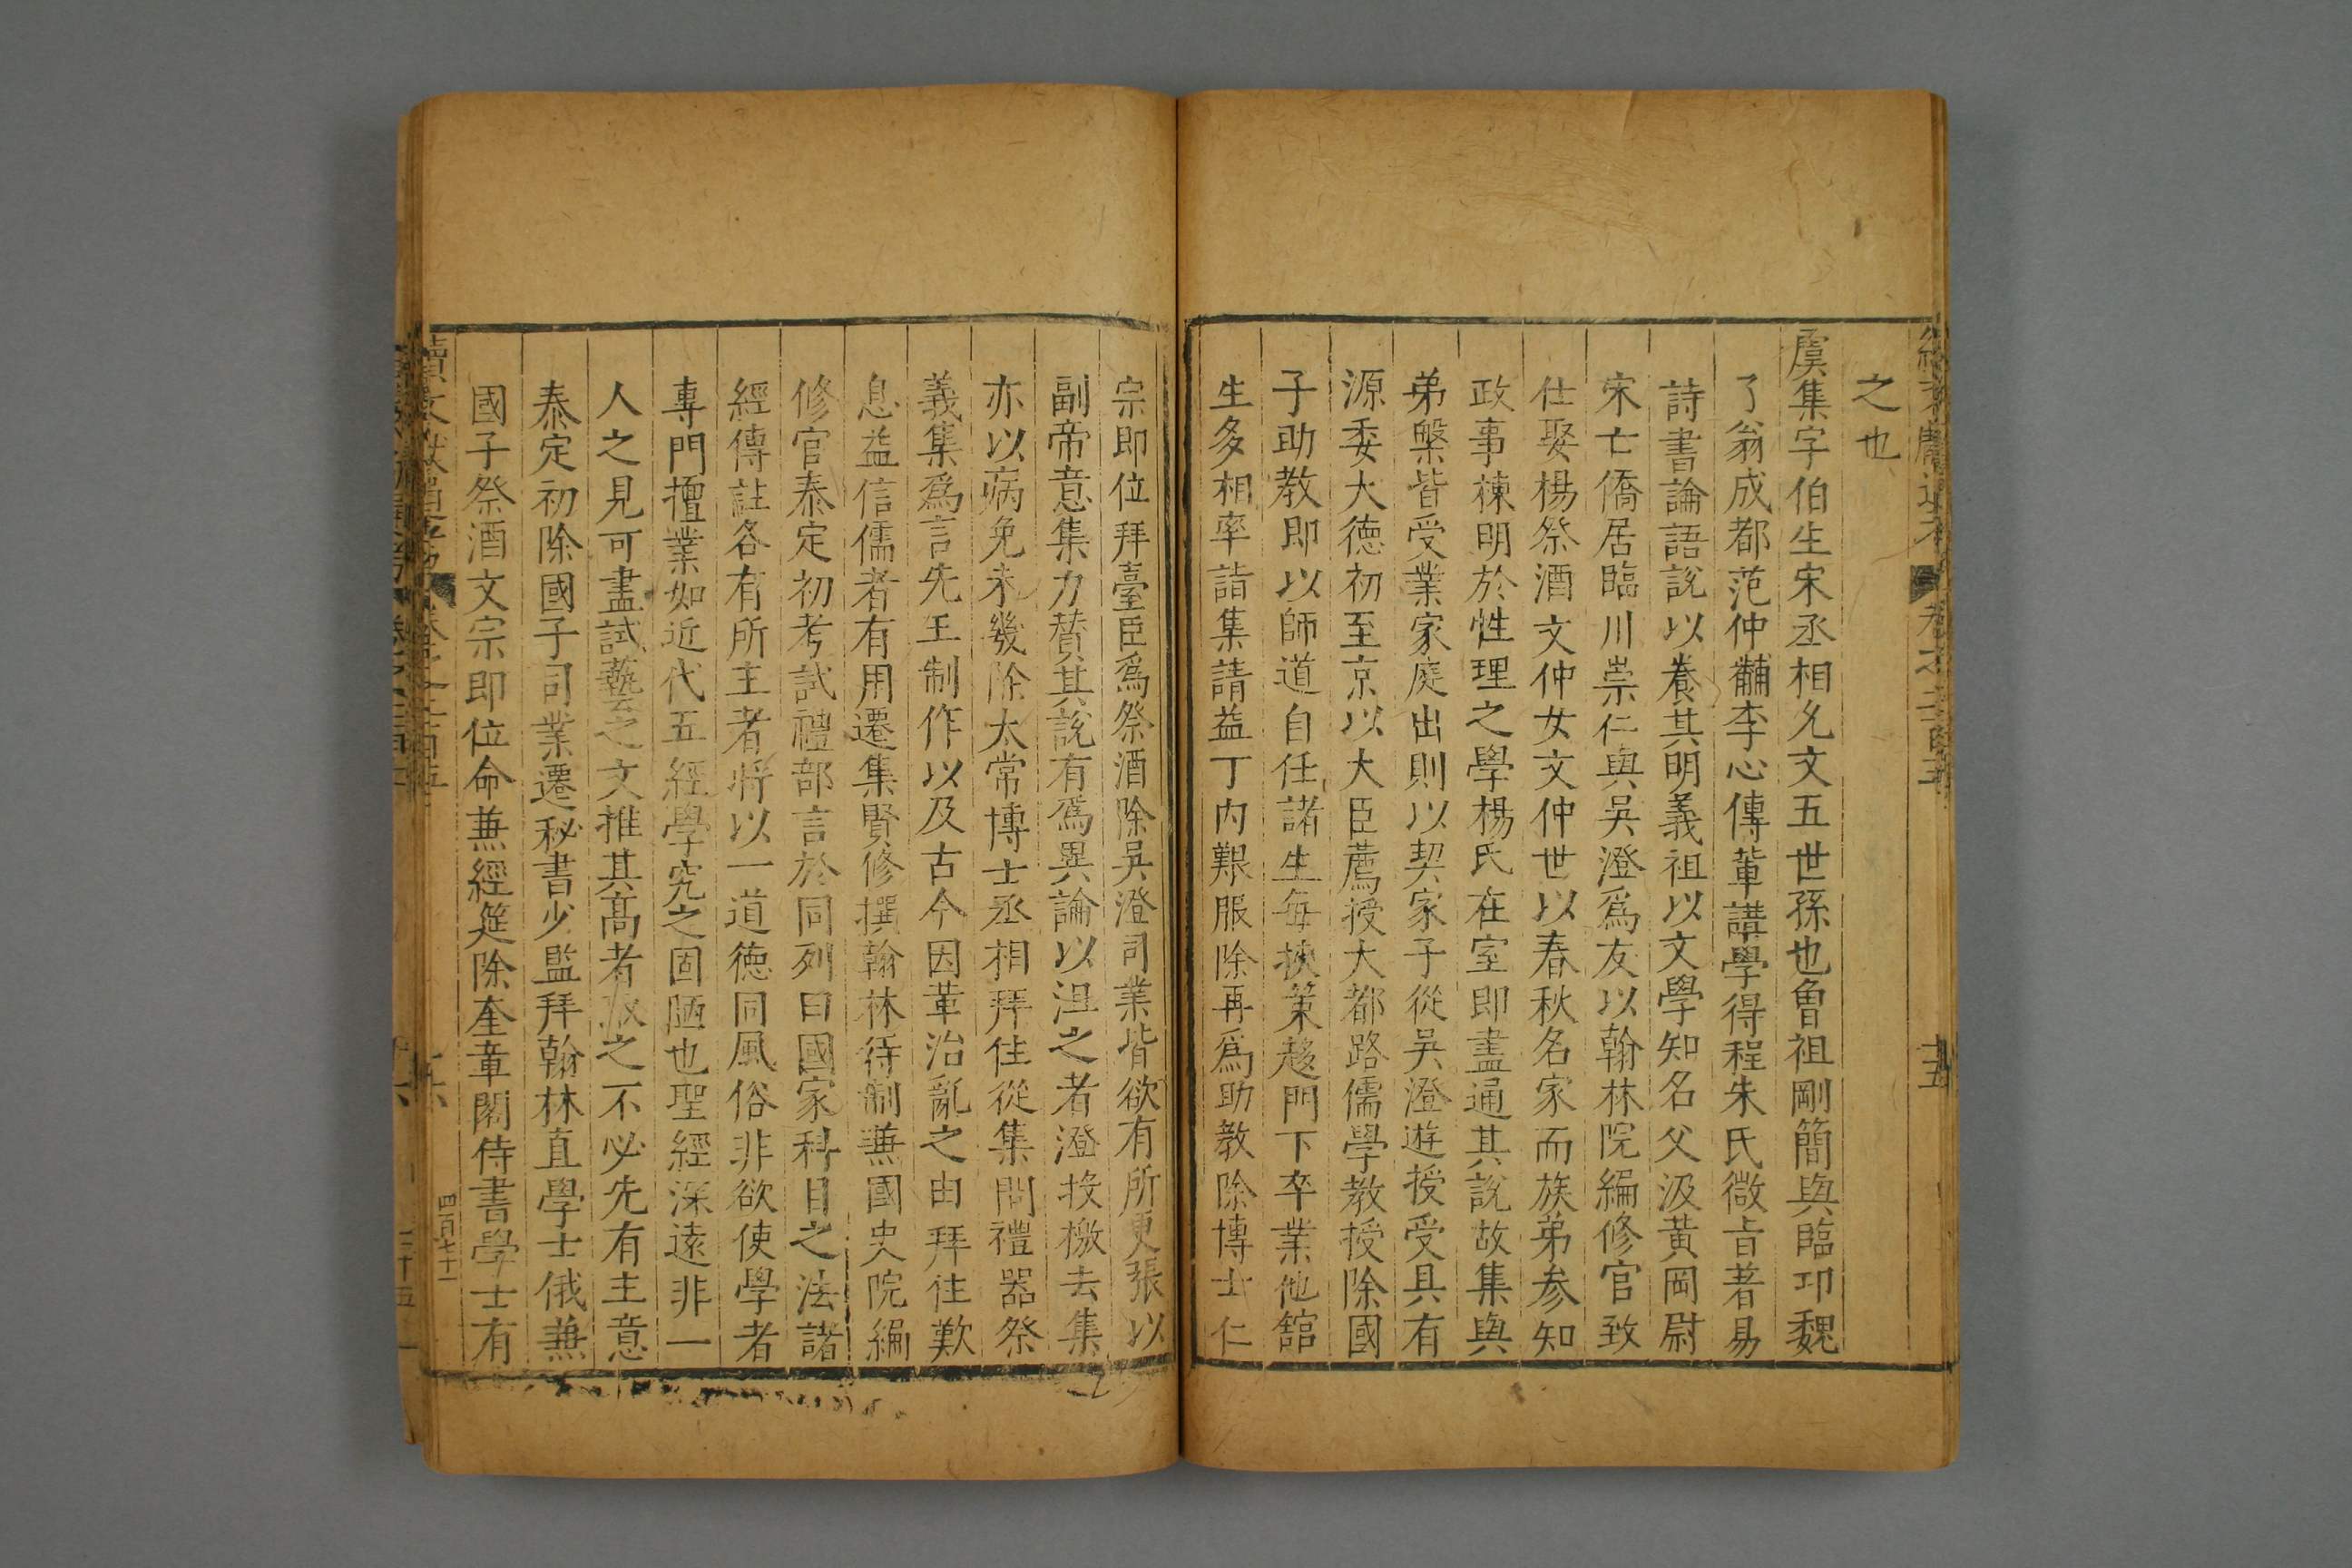 之也
虞集字伯生宋丞相允文五世孫也魯祖剛簡與臨邛魏
了翁成都范仲黼李心傳輩講學得程朱氏微旨著易
詩書論語說以養其明義祖以文學知名父汲黃岡尉
宋亡僑居臨川崇仁與吳澄爲友以翰林院編修官致
仕娶楊祭酒文仲女文仲世以春秋名家而族弟參知
政事棟明於性理之學楊氏在室即盡通其說故集與
弟槃皆受業家庭出則以契家子從吳澄遊授受具有
源委大德初至京以大臣薦授大都路儒學教授除國
子助教即以師道自任諸生每挾策趍門下卒業他舘
生多相率詣集請益丁內艱服除再爲助教除博士仁
宗即位拜臺臣爲祭酒除吳澄司業皆欲有所更張以
副帝意集力賛其說有爲異論以沮之者澄投檄去集
亦以病免未幾除太常博士丞相拜住從集問禮器祭
義集爲言先王制作以及古今因革治亂之由拜住歎
息益信儒者有用遷集賢修撰翰林待制兼國史院編
修官泰定初考試禮部言於同列曰國家科目之法諸
經傳註各有所主者將以一道德同風俗非欲使學者
專門擅業如近代五經學究之固陋也聖經深遠非一
人之見可盡試藝之文推其高者取之不必先有主意
泰定初除國子司業遷秘書少監拜翰林直學士俄兼
國子祭酒文宗即位命兼經筵除奎章閣侍書學士有
四百七十一